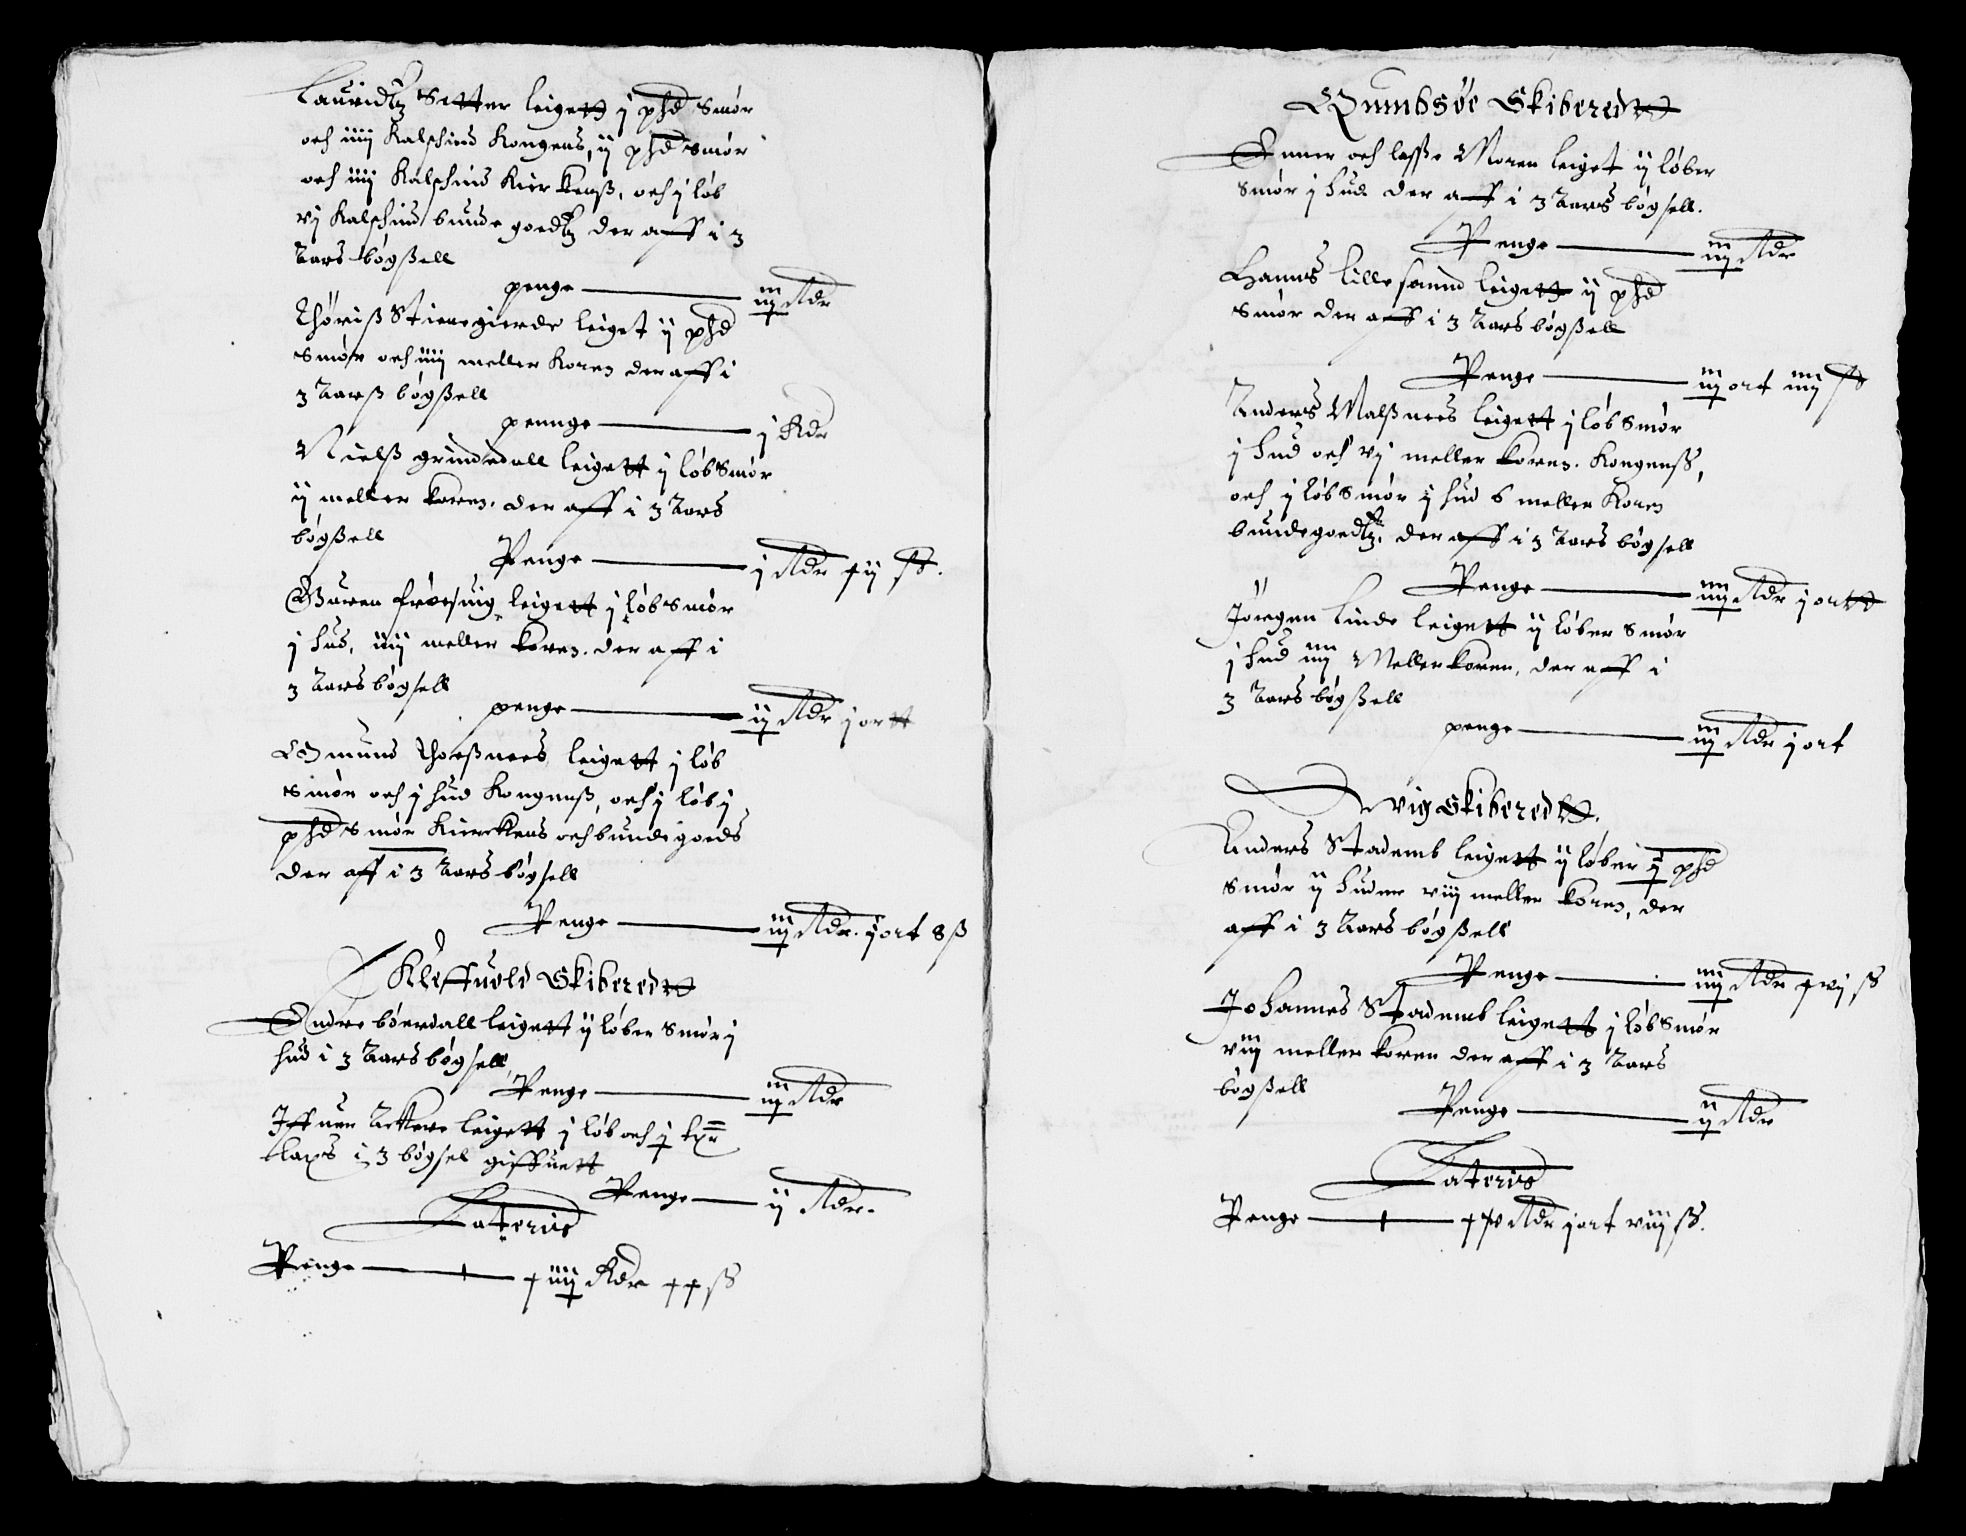 Lauridtz Setter leigett j phd smør
och iiij Kalfschind Kongens, ij phd smør
och iiij Kalfschind Kierkenß, och j løb
vj Kalfschind bunde goedtz der aff i 3
Aars bøgßell
penge iij Rdr
Thøriß Stienegierde leiget ij phd
smør och iiij meller Korenn der aff i
3 Aarß bøgßell
pennge j Rdr
Nielß grindedall leigett j løb smør
ij meller korenn, der aff i 3 Aars
bøgßell
Penge j Rdr xij ß.
Guren leigett j løb smør
j hud, iiij meller korenn, der aff i
3 Aars bøgsell
penge ij Rdr j ortt
Omund Thorßnees leigett j løb
smør och j hud Kongenß, och j løb j
phd smør Kierckens och bundigoeds
der aff i 3 Aars bøgsell
Penge iij Rdr. j ort 8 ß
Kleffueld Skiberedtt
Endre bøerdall leigett ij løber smør j
hud i 3 Aars bøgsell
Penge iij Rdr
Iffuer leigett j løb och
i 3 bøgsel giffuett
Penge ij Rdr.
Lateris
Penge xiiij Rdr xx ß
Gumbsøe Skiberedtt
Ener och lasße Moren leiget ij løber
smør j hud der aff i 3 Aars bøgsell.
Penge iij Rdr
Hanns lille sannd leigett ij phd
smør der aff i 3 Aars bøgßell
Penge iij ort iiij ß
Anders Malßnees leigett j løb smør
j hud och vj meller korenn. Kongenß,
och j løb smør j hud 6 meller Korenn
bundegoedtz, der aff i 3 Aars bøgsell
Penge iiij Rdr j ortt
Jørgen Linde leigett ij løber smør
j hud iiij Meller korenn, der aff i
3 Aars bøgßell
penge iij Rdr j ort
Arvig Skiberedtt.
Anders Stademb leigett ij løber j phd
smør ij huder viij meller korenn, der
aff i 3 Aars bøgßell
Penge iiij Rdr xvj ß
Johannes Stademb leigett j løb smør
viij meller koren der aff i 3 Aars
bøgßell
Penge ij Rdr
Lateris
Penge Rdr j ort viij ß.